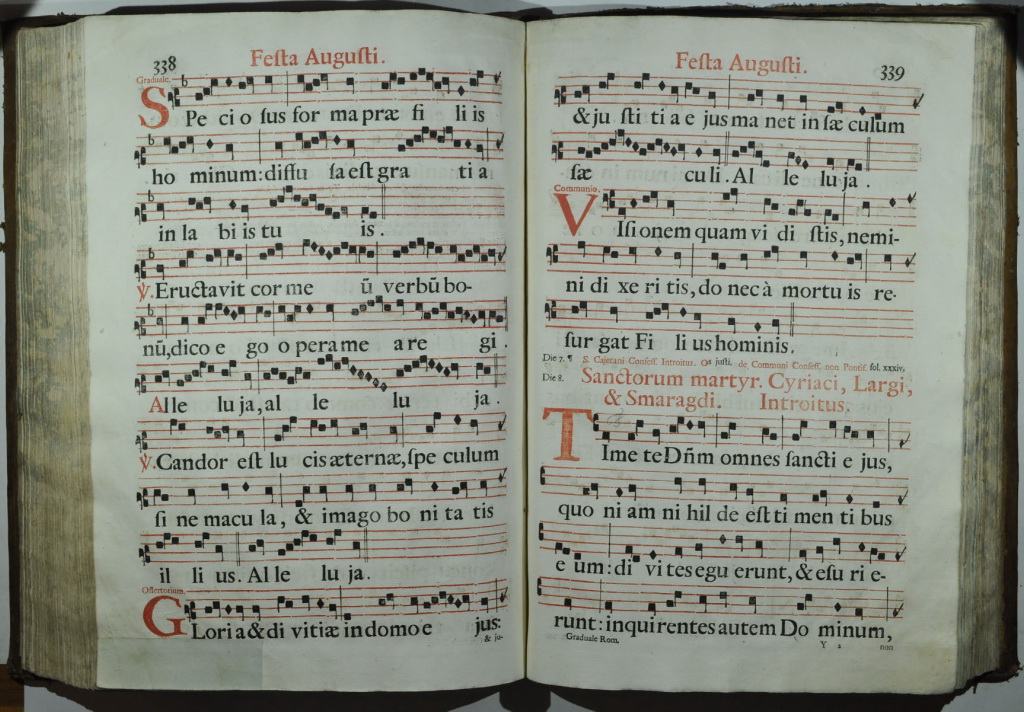 338
Festa Augusti.
Graduale.
SPe ci o sus for ma præ fi li is
ho minum: diffu sa est gra ti a
in la bi is tu is.
℣. Eructavit cor me ū verbū bo-
nū, dico e go o pera me a re gi.
Alle lu ja, al le lu ja.
℣. Candor est lu cis æternæ, spe culum
si ne macu la, & imago bo ni ta tis
il li us. Al le lu ja.
Offertorium.
GLori a & di vitiæ in domo e jus:
& ju-
Festa Augusti.
339
& ju sti ti a e jus ma net in sæ culum
sæ cu li. Al le lu ja.
Communio.
VIsi onem quam vi di stis, nemi-
ni di xe ri tis, do nec à mortu is re-
sur gat Fi li us hominis.
Die 7. ¶ S. Cajetani Confess. Introitus. Os justi. de Communi Confess. non Pontif. fol. xxxiv.
Die 8. Sanctorum martyr. Cyriaci, Largi,
& Smaragdi. Introitus.
TIme te Dñm omnes sancti e jus,
quo ni am ni hil de est ti men ti bus
e um: di vi tes egu erunt, & esu ri e-
runt: inquirentes autem Do minum,
Graduale Rom. Y 2 non